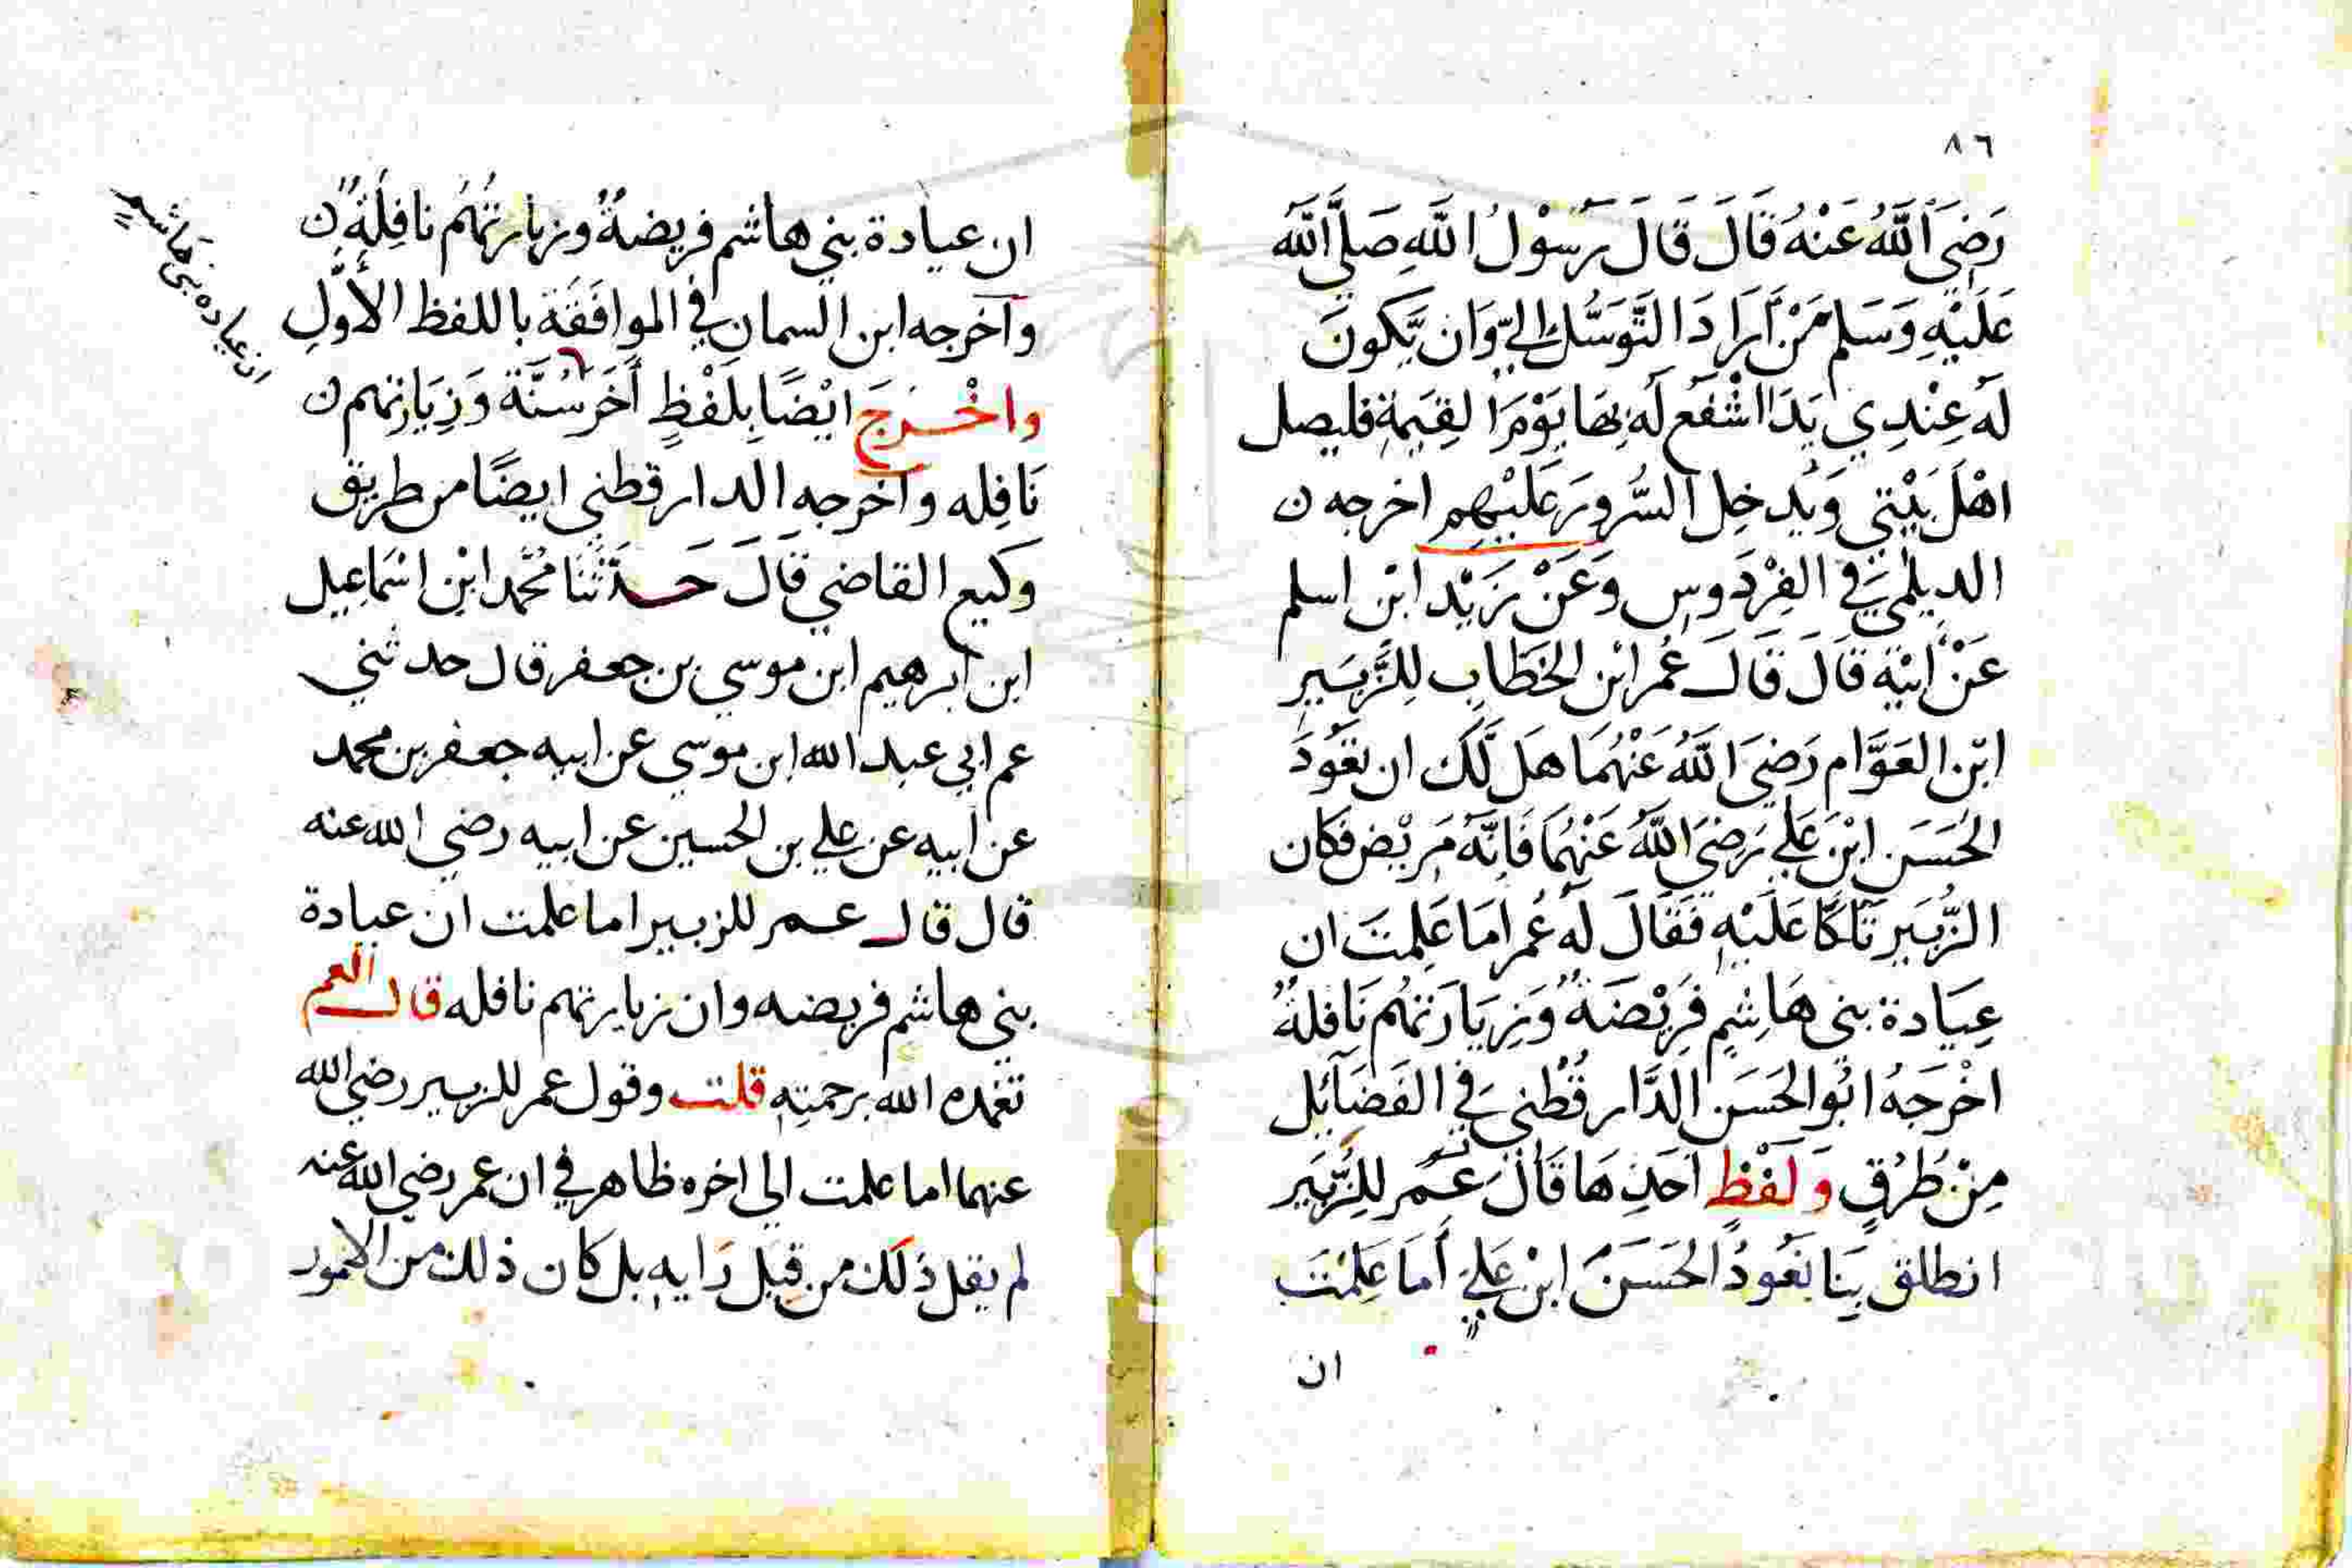 ٨٦
رَضِيَ اَللَّهُ عَنْهُ قَالَ قَالَ رَسُوْلُ اللَّهِ صَلَّى اللَّه
عَلَيْهِ وَسَلم مَنْ اَرَادَ التَّوَسُّل اليّ وَان يَّكونَ
لَه عِنْدِي يَدَا اشْفَع لَه بِهَا يَوْمَ القِيٰمة فليصل
اهْلَ بَيْتي وَيُدخِل السُّرورَ عَلَيْهِم اخرجه ن
الديلمي في الفِرْدَوس وَعَنْ زَيْد ابْن اسلم
عَنْ ابيْه قَالَ قَالَ عُمر ابْن الخَطَّابِ لِلزُّبَير
ابْن العَوَّام رَضيَ اللَّهُ عَنْهُمَا هَل لَّكَ ان نعُودَ
الحَسَن ابْنَ عَلي رَضِيَ اللَّهُ عَنْهُمَا فَاِنَّهُ مَريْض فكان
الزُّبَير تَلَكَّا عَلَيْهِ فَقَالَ لَه عُمر امَا عَلِمتَ ان
عِيَادة بني هَاشِمٍ فَرِيْضَةٌ وَزِيَارَتهُم نَافلةٌ
اخْرَجَهُ ابُو الحَسَن الدَّار قُطْني في الفَضَآئل
مِنْ طُرُقٍ وَلَفْظِ احَدِهَا قَالَ عُمَر لِلزُّبَير
انطلق بِنَا نَعُودُ الحَسَنَ ابْن عَلي أَمَا عَلِمْتَ
ان
ان عيادة بني هاشم فريضةٌ وزيارتهُم نافِلَةٌ ن
وآخرجه ابن السمان في الموافَقَة باللفظ الأَوَّلِ
واخْرَجَ ايْضًا بِلَفْظٍ أَخَر سُنَّة وَزِيَارتهم ن
نَافِله وآخرجه الدارقطني ايضًا من طريق
وكيع القاضي قَالَ حَدَّثَنَا مُحَّمد ابْن اسْمَاعِيل
ابن ابرهيم ابن موسي بن جعفر قال حدثني
عم ابي عبد الله ابن موسي عن ابيه جعفر بن محمد
عن ابيه عن علي بن الحسين عن ابيه رضي الله عنه
قال قال عمر للزبير اما علمت ان عيادة
بني هاشم فريضه وان زيارتهم نافله قال العم
تغمده الله برحمته قلت وقول عمر للزبير رضي الله
عنهما اما علمت الي اخره ظاهر في ان عمر رضي الله عنه
لم يقل ذلك من قبل رَايه بل كان ذلك من الامور
ان عياده بني هَاشمٍ